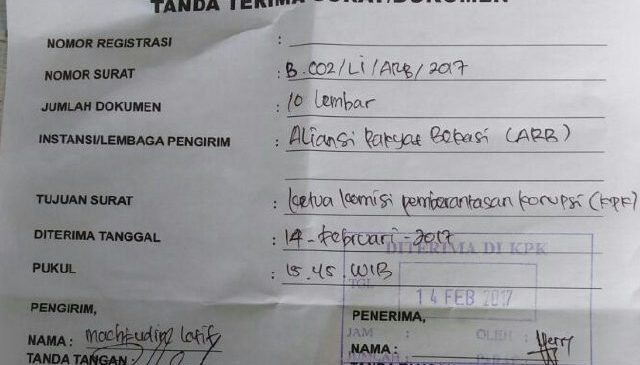 TANDA TERIMA SURAT/DOKUMEN
NOMOR REGISTRASI :
NOMOR SURAT : B.002/LI/ARB/2017
JUMLAH DOKUMEN : 10 lembar
INSTANSI/LEMBAGA PENGIRIM : Aliansi Rakyat Bekasi (ARB)
TUJUAN SURAT : Ketua Komisi pemberantasan Korupsi (KPK)
DITERIMA TANGGAL : 14-Februari-2017
PUKUL : 15.45 WIB
DITERIMA DI KPK
TGL
14 FEB 2017
JAM : OLEH :
PENGIRIM,
NAMA : Machfudin Latif
TANDA TANGAN :
PENERIMA,
NAMA : Herry